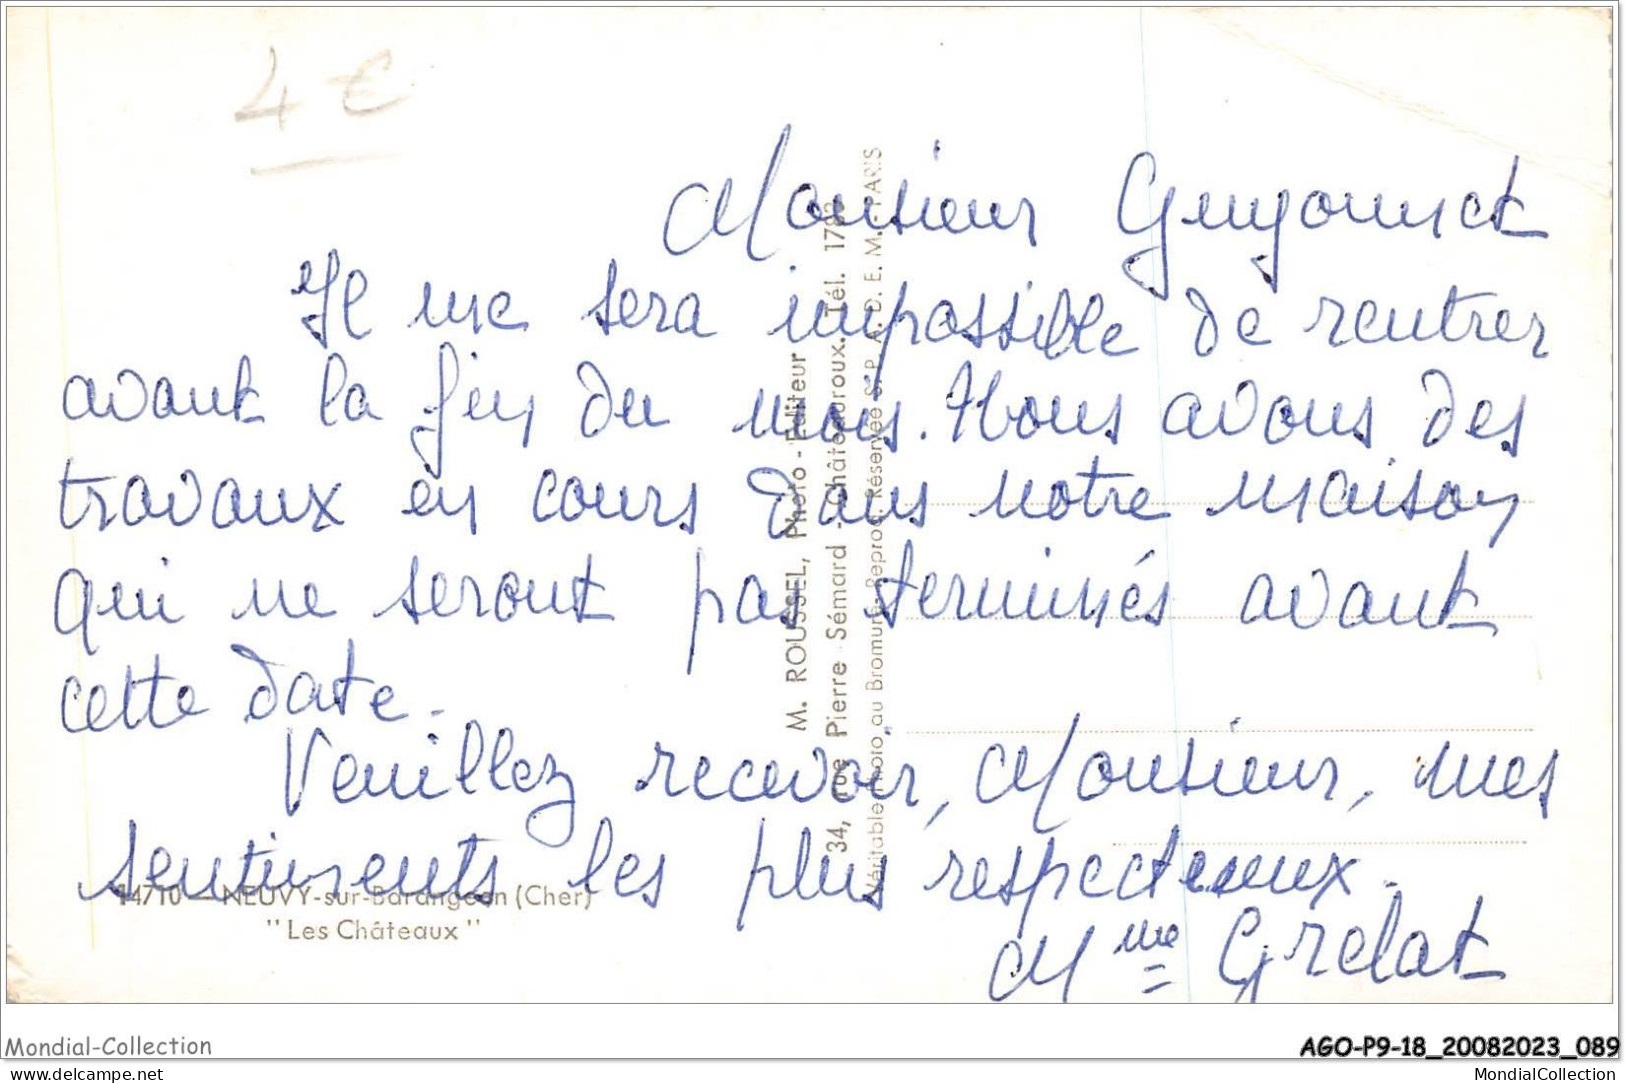 4 €
Monsieur
Il me sera impossible de rentrer
avant la fin du mois. Nous avons des
travaux en cours dans notre maison
qui ne seront pas terminés avant
cette date.
Veuillez recevoir, Monsieur, mes
sentiments les plus respectueux.
Mme Grelat
M. ROUSSEL, Photo - Editeur
34, rue Pierre Sémard - Châteauroux. Tél. 
Véritable Photo au Bromure - Reprod. Réservée S. P. A. D. E. M. - PARIS
14710 — NEUVY-sur-Barangeon (Cher)
"Les Châteaux"
Mondial-Collection
AGO-P9-18_20082023_089
www.delcampe.net
MondialCollection